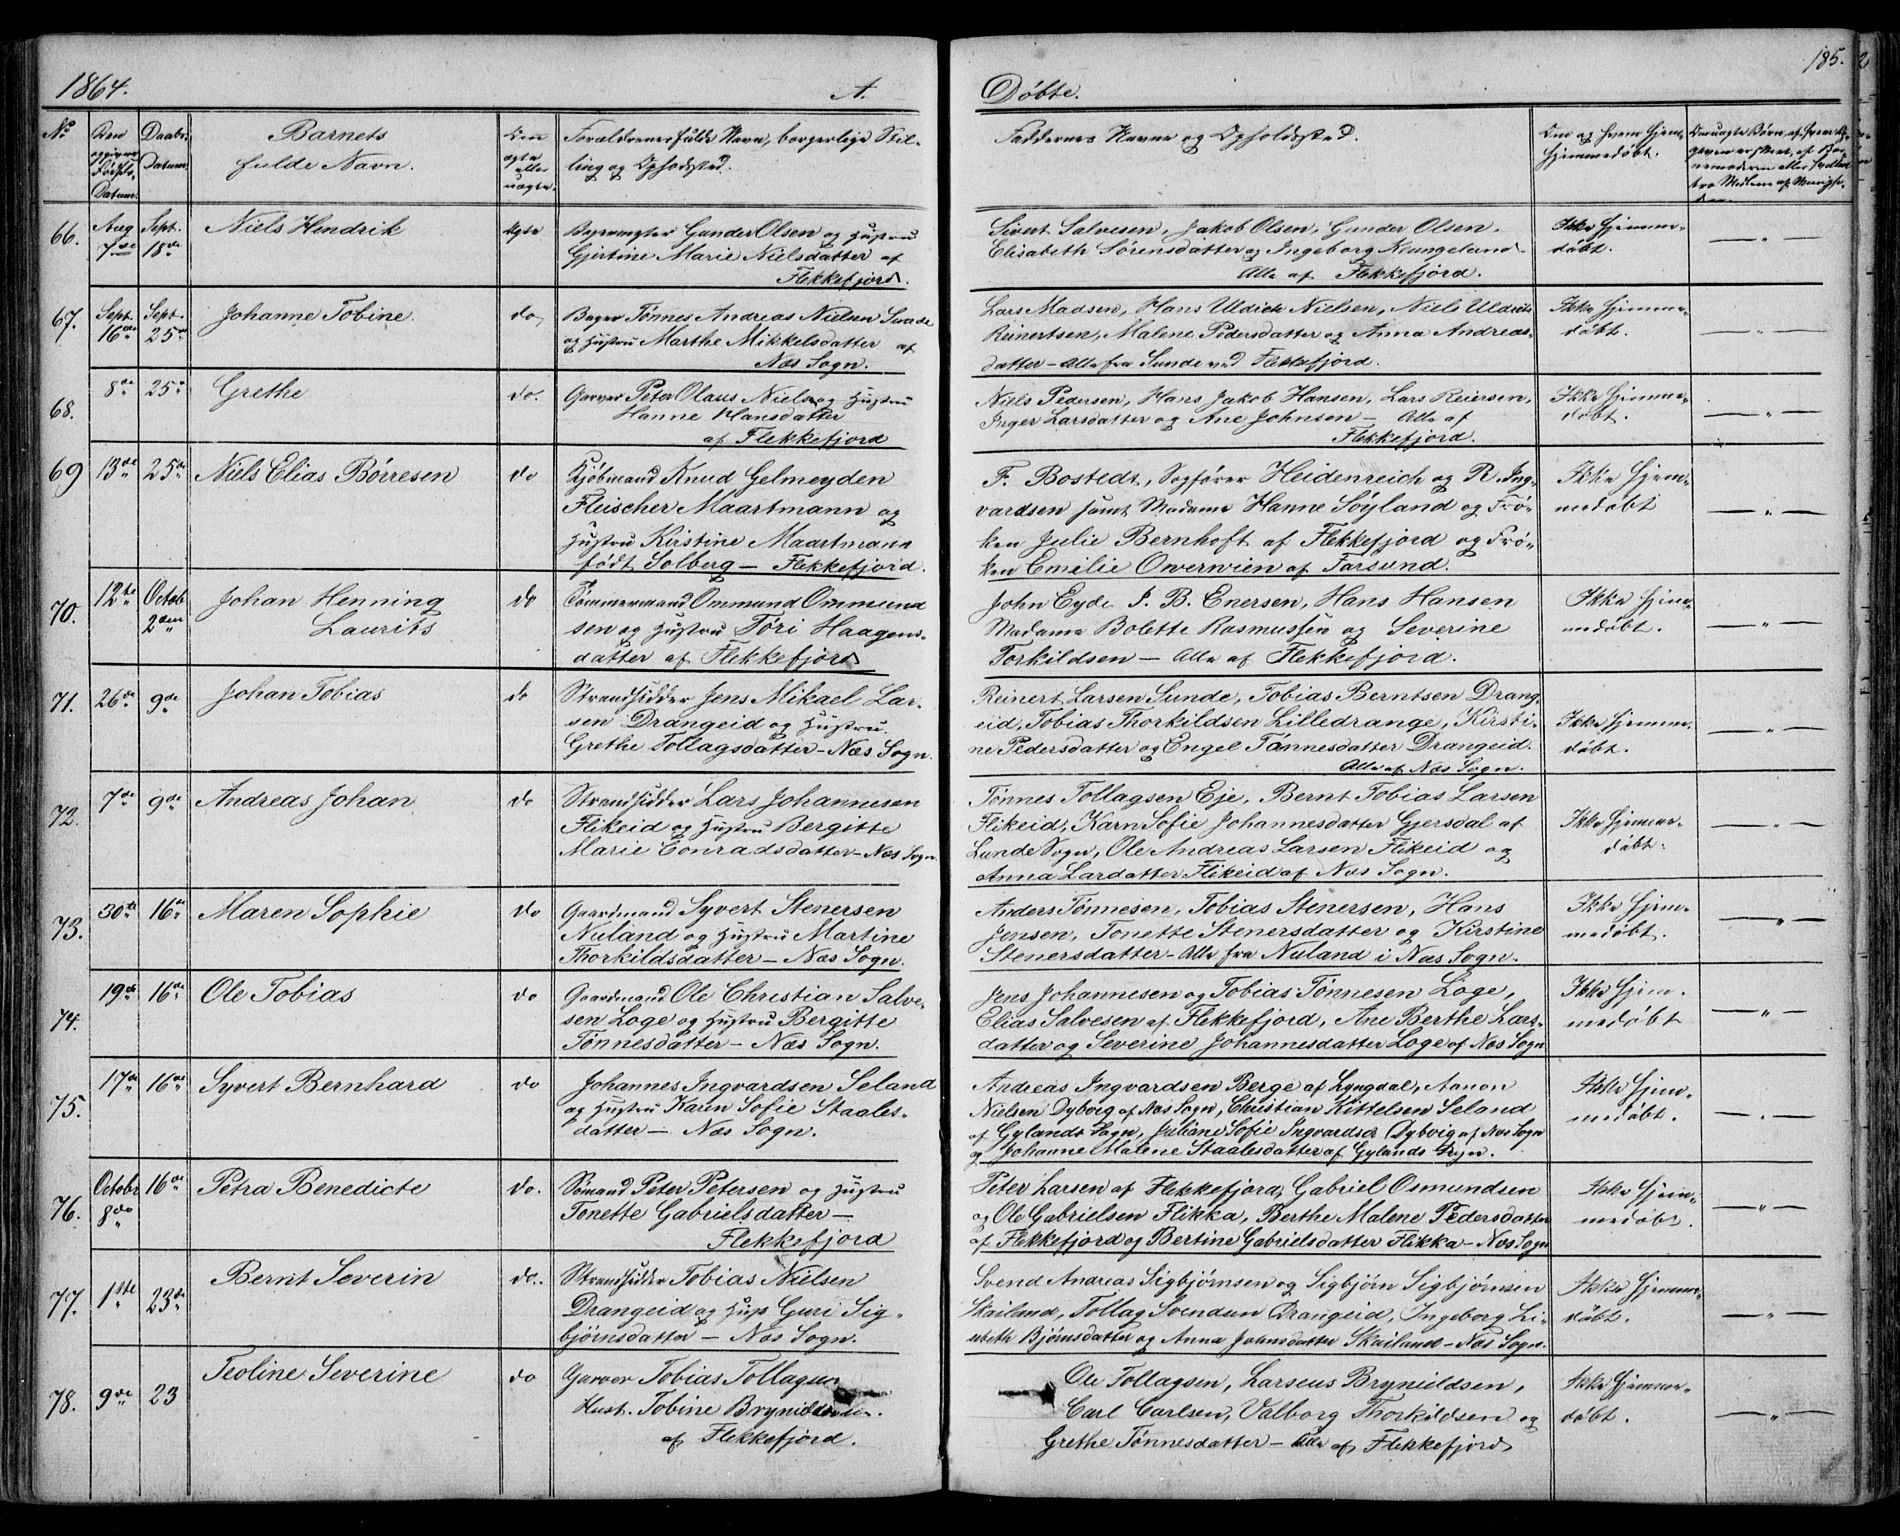 1864.
A.
Døbte.
185.
No
Den
opgivne
Fødsels-
Datum.
Daabs-
Datum.
Barnets
fulde Navn.
Om
ægte
eller
uægte.
Forældrenes fulde Navn, borgerlige Stil-
ling og Opholdssted.
Faddernes Navne og Opholdssted.
Om og hvem hjem-
hjemmedøbt.
66.
Aug
7de
Sept.
18de
Niels Hendrik
Ægte
Gunder Olsen og Hustru
Gjertine Marie Nielsdatter af
Flekkefjord.
Sivert Salvesen, Jakob Olsen, Gunder Olsen,
Elisabeth Sørensdatter og Ingeborg Klungeland
Alle af Flekkefjord.
Ikke hjemme-
døbt.
67.
Sept.
16de
Sept.
25de
Johanne Tobine.
do,
Bager Tønnes Andreas Nielsen Sunde
og Hustru Marthe Mikkelsdatter af
Næs Sogn.
Lars Madsen, Hans Uldrich Nielsen, Niels Uldriks
Reinertsen, Malene Pedersdatter og Anna Andreas-
datter - Alle fra Sunde ved Flekkefjord.
Ikke hjemme-
døbt.
68.
8de
25de
Grethe
do.
Garver Peter Olaus Nielsen og Hustru
Hanne Hansdatter
af Flekkefjord
Niels Pedersen, Hans Jakob Hansen, Lars Reiersen,
Inger Larsdatter og Ane Johnsen - Alle af
Flekkefjord.
Ikke hjemme-
døbt.
69
13de
25de
Niels Elias Børresen
do
Kjøbmand Knud Gelmeyden
Fleischer Maartmann og
Hustru Kirstine Maartmann
født Solberg - Flekkefjord.
F. Bostedt, Sagfører Heidenreich og R. Ing-
vardsen samt Madame Hanne Søyland og Frø-
ken Julie Bernhoft af Flekkefjord og Frø-
ken Emilie Owerwien af Farsund.
Ikke hjem-
medøbt
70.
12te
Octob
2den
Johan Henning
Laurits
do
Tømmermand Ommund Ommund
sen og Hustru Tøri Haagens-
datter af Flekkefjord
John Eyde J. B. Enersen, Hans Hansen
Madame Bolette Rasmussen og Severine
Torkildsen - Alle af Flekkefjord.
Ikke hjem-
medøbt.
71.
26de
9de
Johan Tobias
do
Strandsidder Jens Mikael Lar-
sen Drangeid og Hustru
Grethe Tollagsdatter - Næs Sogn.
Reinert Larsen Sunde, Tobias Berntsen Drang-
eid, Tobias Thorkildsen Lilledrange, Kirsti-
ne Pedersdatter og Engel Tønnesdatter Drangeid.
Alle af Næs Sogn.
Ikke hjemme-
døbt.
72.
7de
9de
Andreas Johan
do
Strandsidder Lars Johannesen
Flikeid og Hustru Bergitte
Marie Conradsdatter - Næs Sogn.
Tønnes Tollagsen Eje, Bernt Tobias Larsen
Flikeid, Karn Sofie Johannesdatter Gjersdal af
Lunde Sogn, Ole Andreas Larsen Flikeid og
Anna Larsdatter Flikeid af Næs Sogn.
Ikke hjemme-
døbt.
73.
30te
16de
Maren Sophie
do
Gaardmand Syvert Stenersen
Nuland og Hustru Martine
Thorkildsdatter - Næs Sogn.
Anders Tønnesen, Tobias Stenersen, Hans
Jensen, Tonette Stenersdatter og Kirstine
Stenersdatter - Alle fra Nuland i Næs Sogn.
Ikke hjem-
medøbt.
74.
19de
16de
Ole Tobias
do
Gaardmand Ole Christian Salve-
sen Loge og Hustru Bergitte
Tønnesdatter - Næs Sogn.
Jens Johannesen og Tobias Tønnesen Loge,
Elias Salvesen af Flekkefjord, Ane Berthe Lars-
datter og Severine Johannesdatter Loge af Næs Sogn
Ikke hjem-
medøbt
75.
17de
16de
Syvert Bernhard
do
Johannes Ingvardsen Seland
og Hustru Karen Sofie Staales-
datter - Næs Sogn.
Andreas Ingvardsen Berge af Lyngdal, Aanon
Nielsen Dyborg af Næs Sogn, Christian Kittelsen Seland
af Gylands Sogn, Juliane Sofie Ingvardsd Dybvig af Næs Sogn
og Johanne Malene Staalesdatter af Gylands Sogn.
Ikke hjem-
medøbt.
76.
Octobr
8de
16de
Petra Benedicte
do.
Sømand Peter Petersen og Hustru
Tonette Gabrielsdatter -
Flekkefjord
Peter Larsen af Flekkefjord, Gabriel Osmundsen
og Ole Gabrielsen Flikka, Berthe Malene Pedersdatter
af Flekkefjord og Bertine Gabrielsdatter Flikka - Næs Sogn
Ikke hjem-
medøbt.
77.
1ste
23de
Bernt Severin
do.
Strandsidder Tobias Nielsen
Drangeid og Hus Guri Sig-
bjørnsdatter - Næs Sogn.
Svend Andreas Sigbjørnsen og Sigbjørn Sigbjørnsen
Skailand, Tollag Svendsen Drangeid, Ingeborg Li-
sebeth Bjørnsdatter og Anna Johnsdatter Skailand - Næs Sogn.
Ikke hjemme-
døbt.
78.
9de
23
Teoline Severine
do
Garver Tobias Tollagsen
Hust. Tobine Brynildsen.
af Flekkefjord.
Ole Tollagsen, Larseus Brynildsen,
Carl Carlsen, Valborg Thorkildsen og
Grethe Tønnesdatter - Alle af Flekkefjord
Ikke hjemme-
døbt.